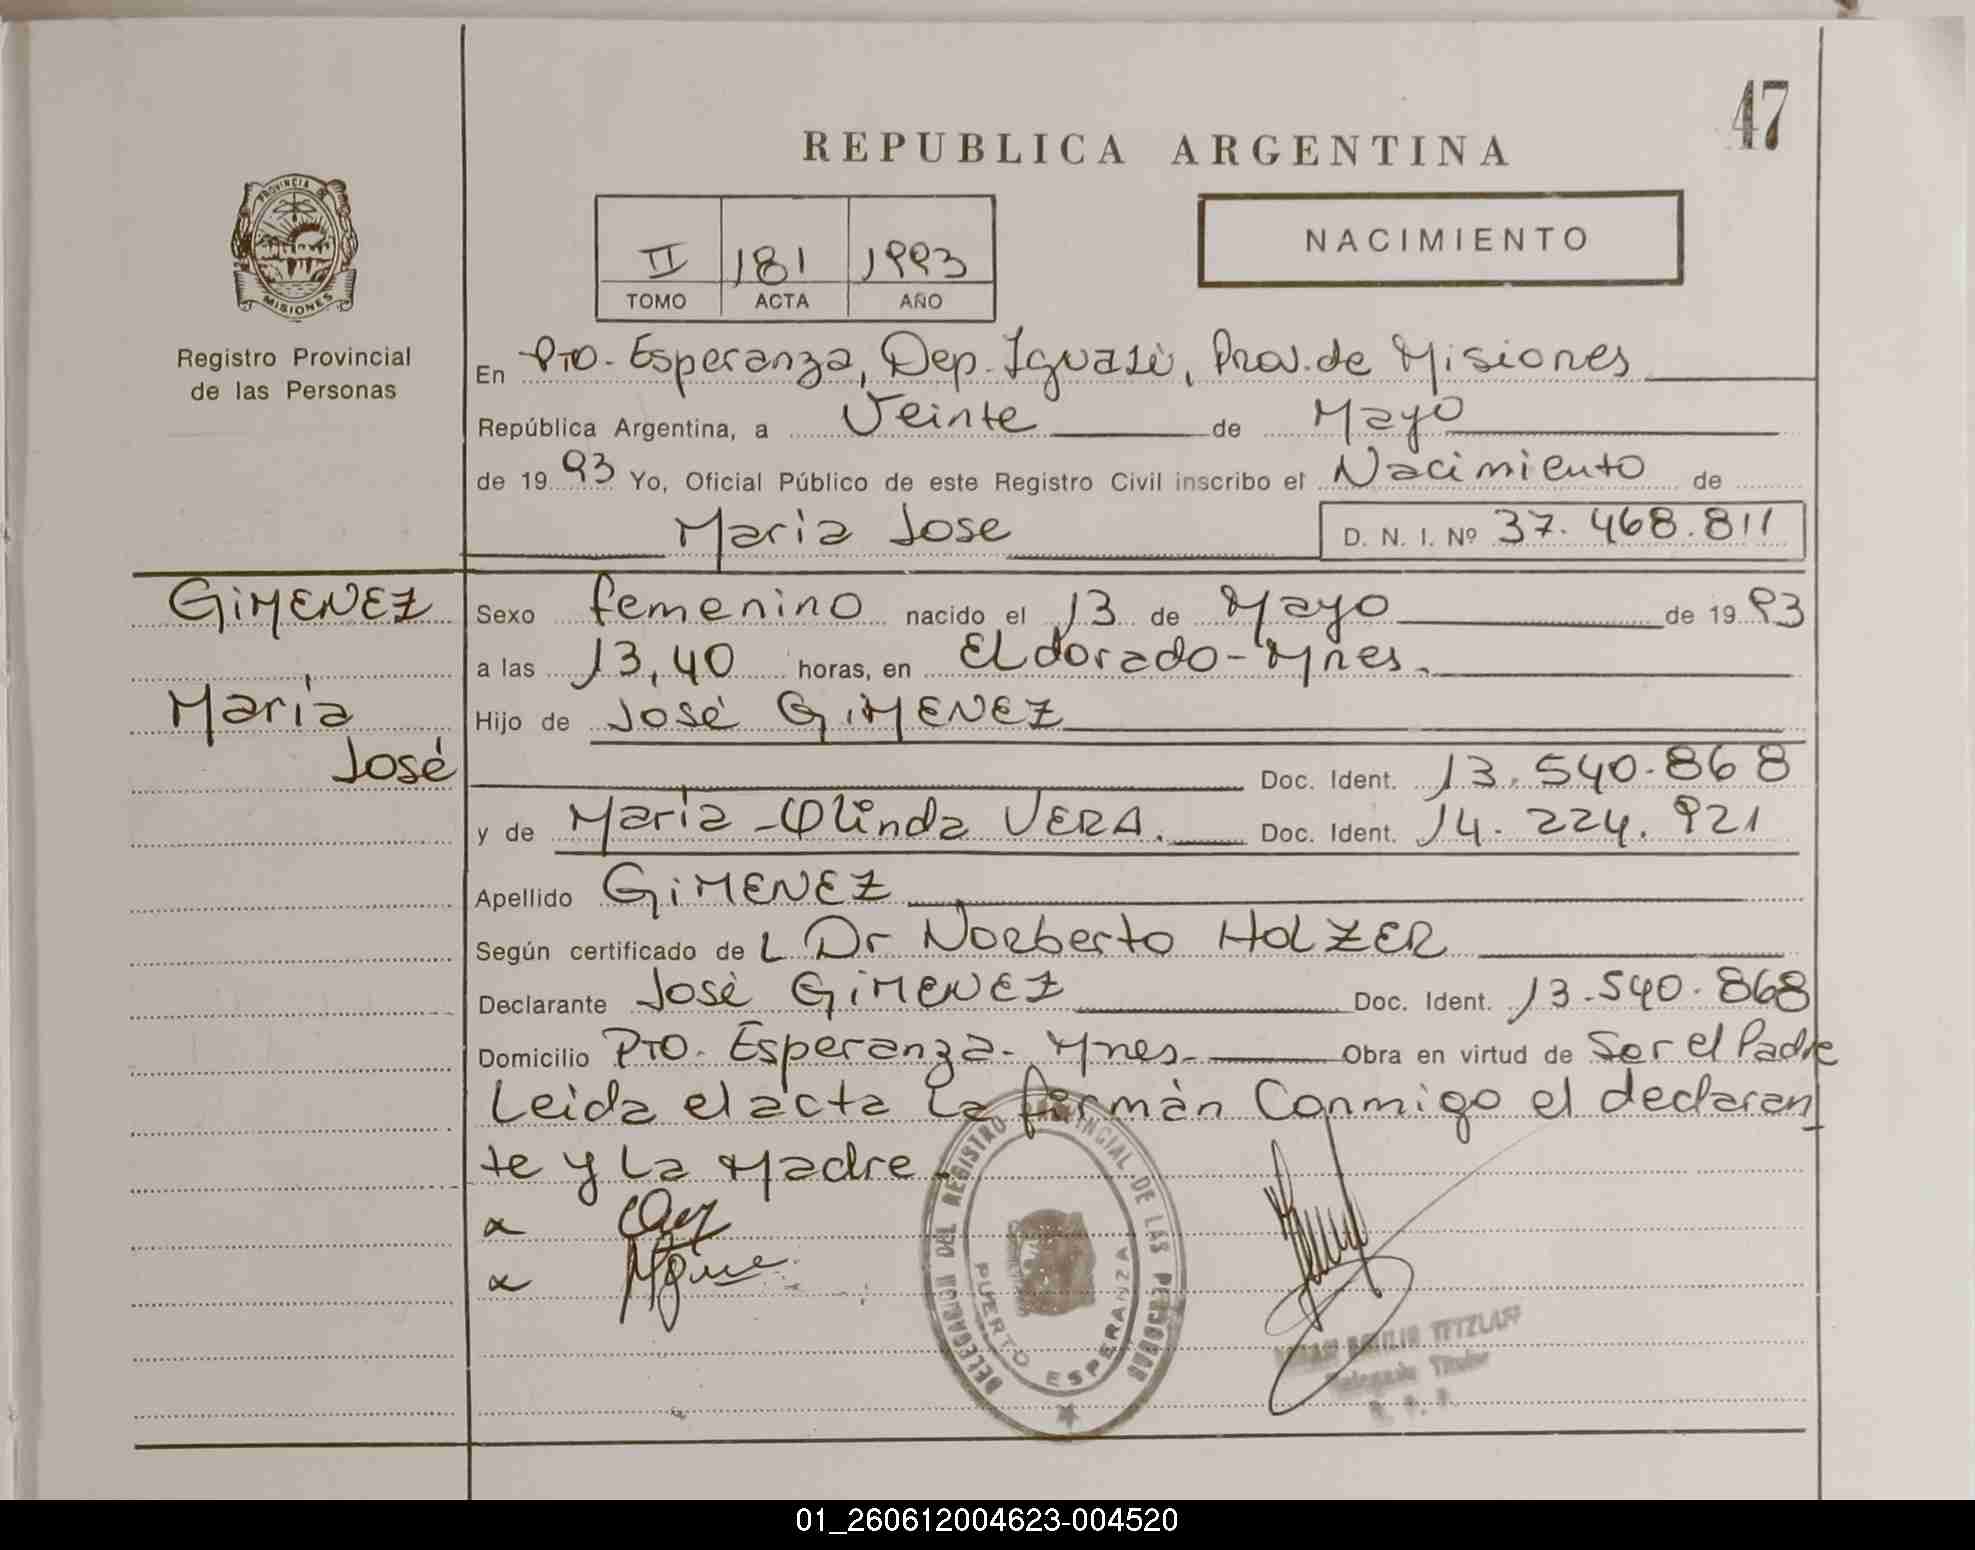 47
REPUBLICA ARGENTINA
PROVINCIA DE
MISIONES
II 181 1993
TOMO ACTA AÑO
NACIMIENTO
Registro Provincial
de las Personas
En Pto. Esperanza, Dep. Iguazú, Prov. de Misiones
República Argentina, a Veinte de Mayo
de 1993 Yo, Oficial Público de este Registro Civil inscribo el Nacimiento de
Maria Jose D. N. I. Nº 37.468.811
GIMENEZ
Maria
José
Sexo femenino nacido el 13 de Mayo de 1993
a las 13,40 horas, en Eldorado-Mnes.
Hijo de José GIMENEZ
Doc. Ident. 13.540.868
y de Maria-Olinda VERA. Doc. Ident. 14.224.921
Apellido GIMENEZ
Según certificado de L Dr Norberto HOLZER
Declarante José GIMENEZ Doc. Ident. 13.540.868
Domicilio Pto. Esperanza- Mnes. Obra en virtud de Ser el Padre
Leida el acta la firmán Conmigo el declaran
te y la Madre.
DELEGACION DEL REGISTRO PROVINCIAL DE LAS PERSONAS
PUERTO ESPERANZA
TETZLAFF
Delegado Titular
01_260612004623-004520